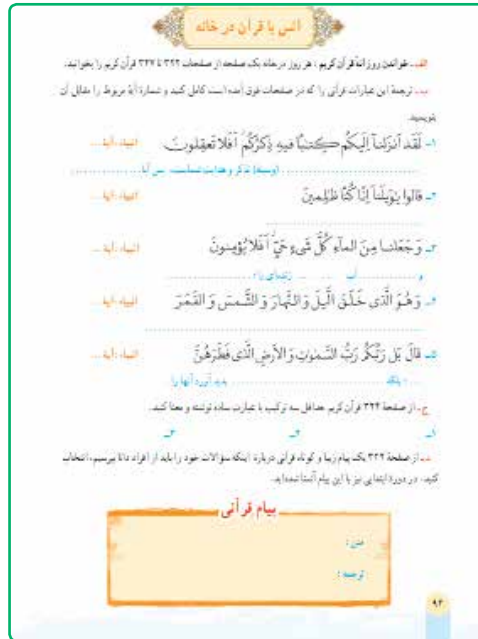 انس با قرآن در خانه
الف ـ خواندن روزانهٔ قرآن کریم : هر روز در خانه یک صفحه از صفحات ۳۲۲ تا ۳۲۷ قرآن کریم را بخوانید.
ب ـ ترجمهٔ این عبارات قرآنی را که در صفحات فوق آمده است کامل کنید و شمارهٔ آیهٔ مربوط را مقابل آن
بنویسید.
۱ـ لَقَد اَنزَلنآ اِلَیکُم کِتٰبًا فیهِ ذِکرُکُم اَفَلا تَعقِلونَ انبیاء، آیهٔ ...
(وسیله) تذکر و هدایت شماست. پس آیا ...
۲ـ قالوا یٰوَیلَنآ اِنّا کُنّا ظٰلِمینَ انبیاء، آیهٔ ...
۳ـ وَ جَعَلنا مِنَ المآءِ کُلَّ شَیءٍ حَیٍّ اَفَلا یُؤمِنونَ انبیاء، آیهٔ ...
و ... آب ... زنده‌ای را؛ ...
۴ـ وَ هُوَ الَّذی خَلَقَ الَّیلَ وَ النَّهارَ وَ الشَّمسَ وَ القَمَرَ انبیاء، آیهٔ ...
۵ـ قالَ بَل رَبُّکُم رَبُّ السَّمٰوٰتِ وَ الاَرضِ الَّذی فَطَرَهُنَّ انبیاء، آیهٔ ...
... : بلکه ... پدید آورد آنها را
ج ـ از صفحهٔ ۳۲۴ قرآن کریم حداقل سه ترکیب یا عبارت ساده نوشته و معنا کنید.
۱ـ ۲ـ ۳ـ
د ـ از صفحهٔ ۳۲۲ یک پیام زیبا و کوتاه قرآنی دربارهٔ اینکه سؤالات خود را باید از افراد دانا بپرسیم، انتخاب
کنید. در دورهٔ ابتدایی نیز با این پیام آشنا شده‌اید.
پیام قرآنی
متن :
ترجمه :
۹۲